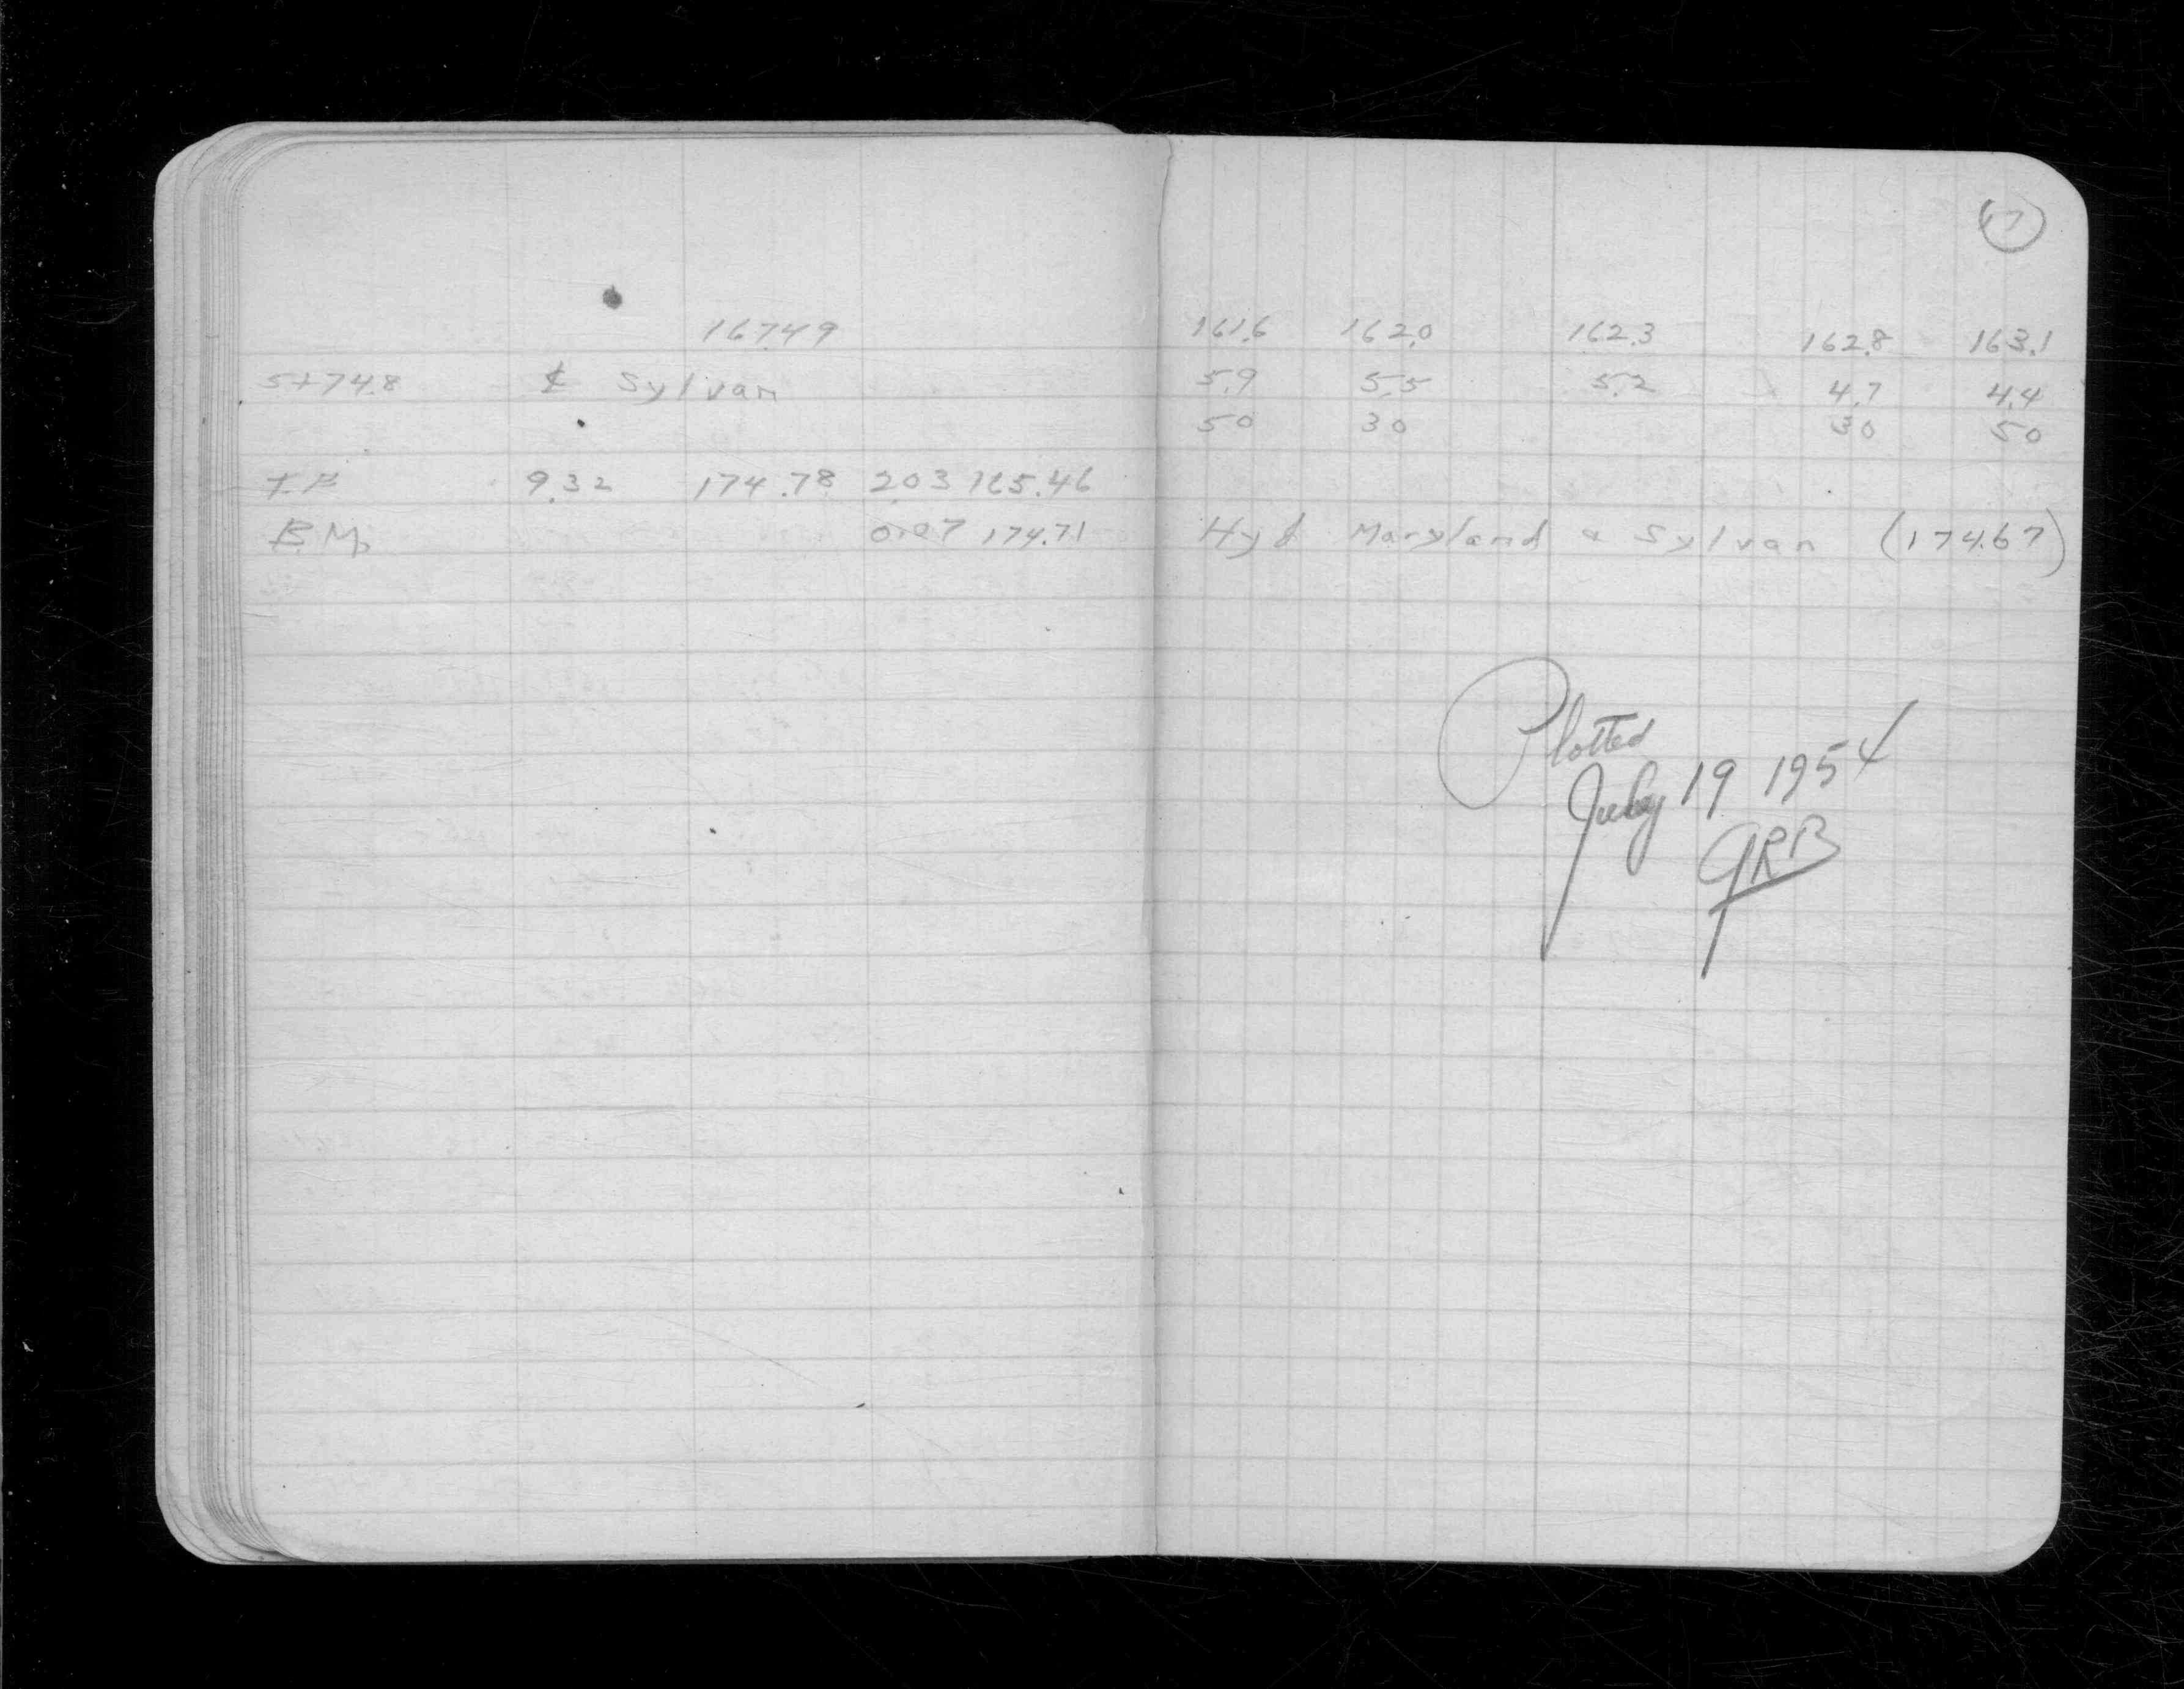 167.49 161.6 162.0 162.3 162.8 163.1
5+74.8 ℄ Sylvan 5.9 5.5 5.2 4.7 4.4
50 30 30 50
T.P. 9.32 174.78 2.03 165.46
B.M. 0.07 174.71 Hyd Maryland & Sylvan (174.67)
Plotted
July 19 1954
GRB